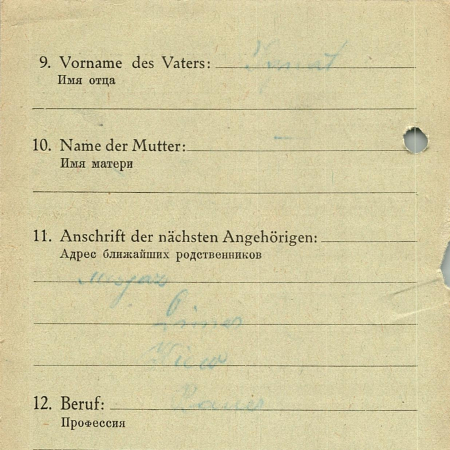 9. Vorname des Vaters: Ignat
Имя отца
10. Name der Mutter: —
Имя матери
11. Anschrift der nächsten Angehörigen:
Адрес ближайших родственников
12. Beruf: Bauer
Профессия